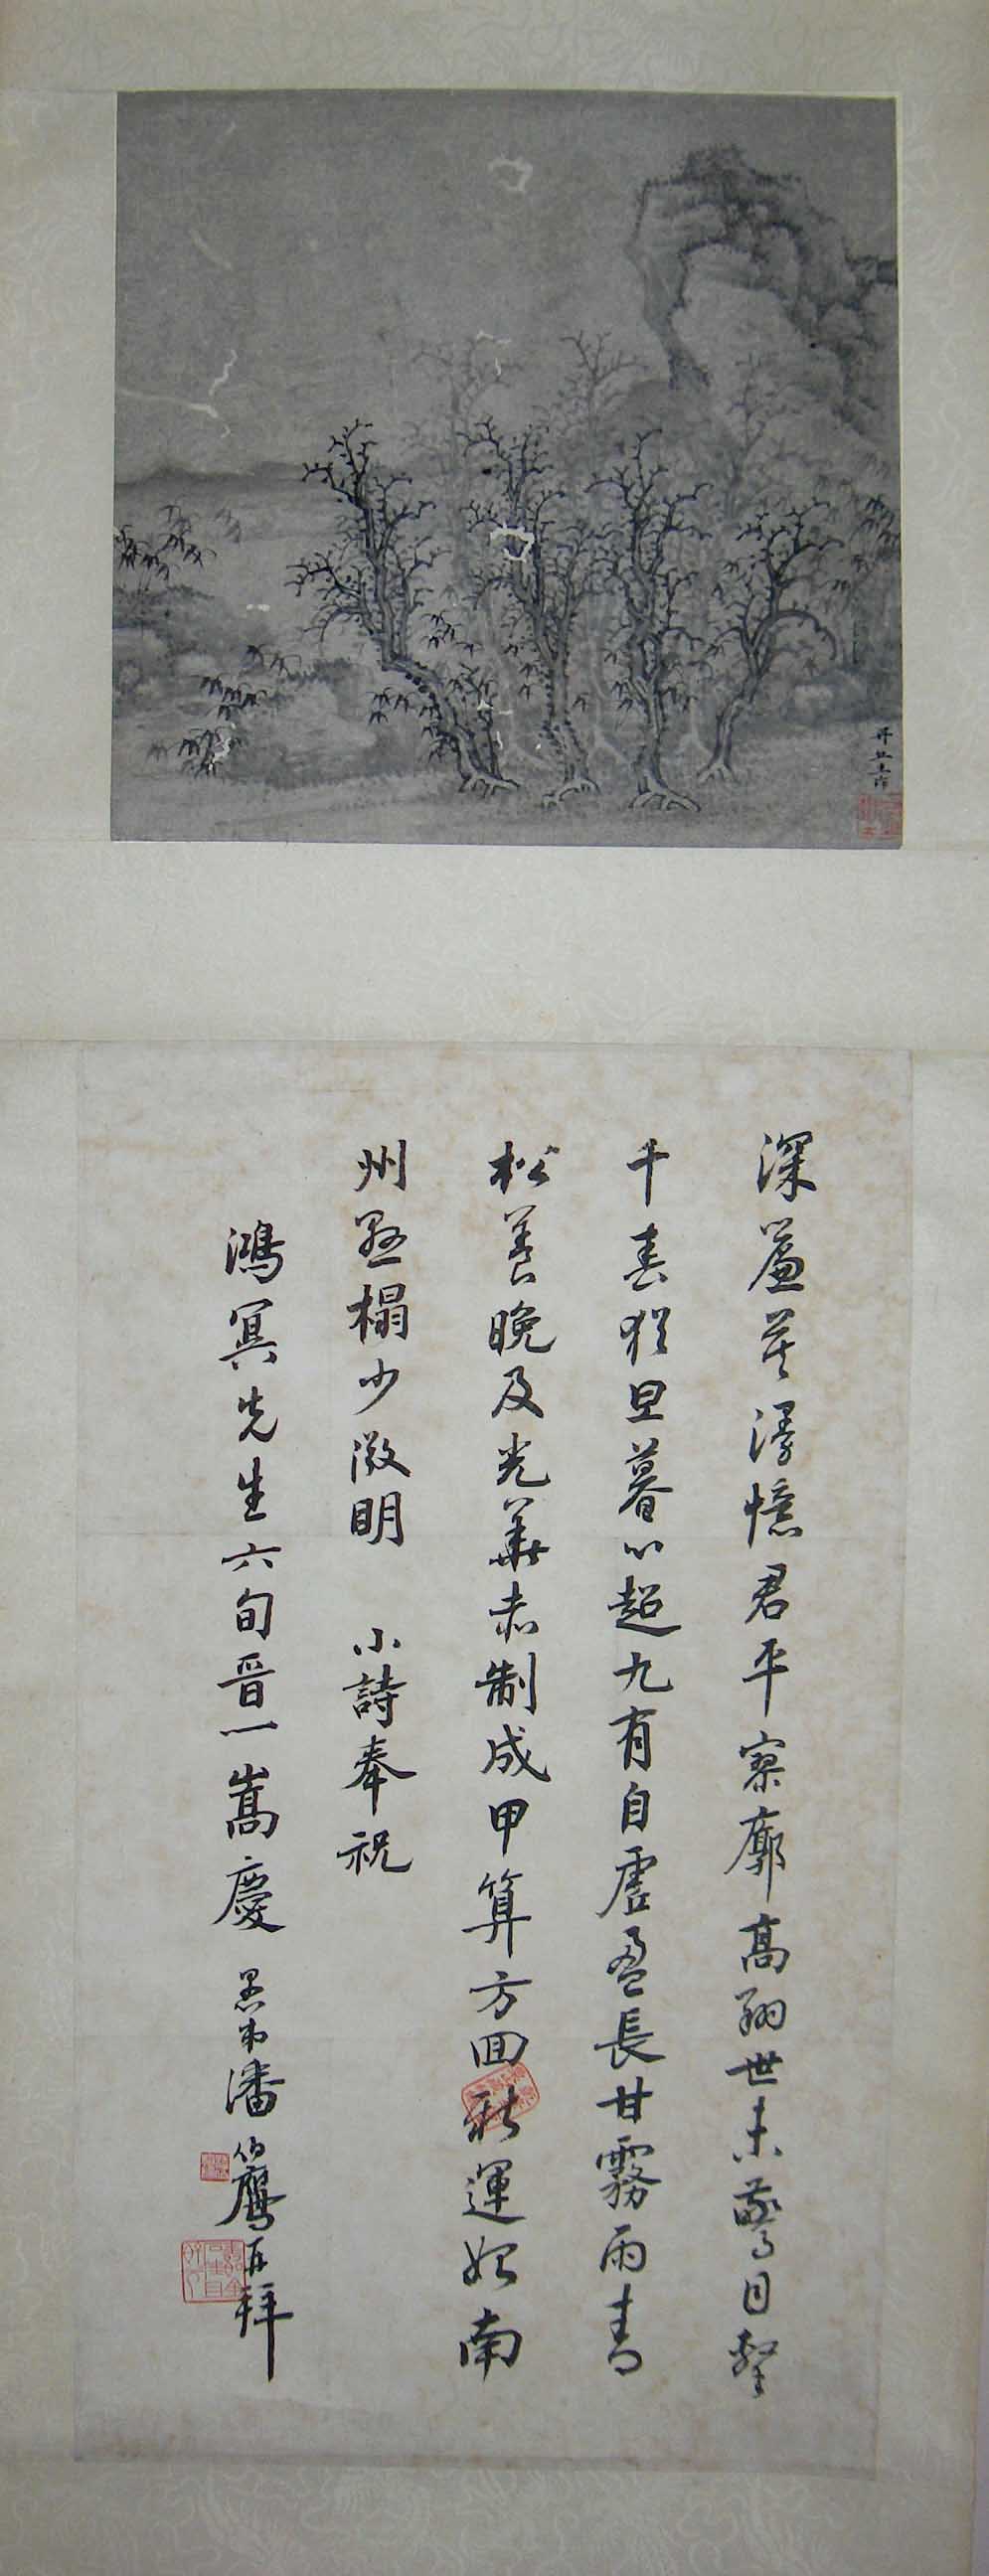 丹丘生作
深簾莫漫憶君平寥廓高翔世未驚目擊
千春猶旦暮心超九有自虛盈長甘霧雨青
松養晚及光華赤制成甲算方回秋運始南
州懸榻少微明 小詩奉祝
鴻冥先生六旬晉一嵩慶 愚弟潘伯鷹再拜